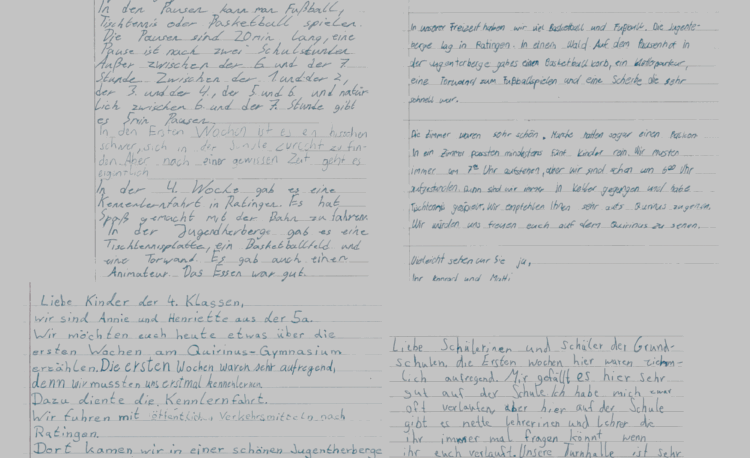 In den Pausen kann man Fußball,
Tischtennis oder Basketball spielen.
Die Pausen sind 20min, lang, eine
Pause ist nach zwei Schulstunden
Außer zwischen der 6 und der 7.
Stunde. Zwischen der 1 und der 2,
der 3. und der 4., der 5 und 6, und natür
lich zwischen 6 und der 7. Stunde gibt
es 5min Pausen.
In den Ersten Wochen ist es ein bisschen
schwer, sich in der Schule zurecht zu fin-
den. Aber nach einer gewissen Zeit geht es
eigentlich
In der 4. Woche gab es eine
Kennenlernfahrt in Ratingen. Es hat
Spaß gemacht mit der Bahn zu fahren
In der Jugendherberge gab es eine
Tischtennisplatte, ein Basketballfeld und
eine Torwand. Es gab auch einen
Animateur. Das Essen war gut.
In unserer Freizeit haben wir viel Basketball und Fußball. Die Jugente-
berge lag in Ratingen. In einem Wald Auf den Pausenhof in
der Jugenterberge gab es einen Basketballkorb, ein
eine Torwand zum Fußballspielen und eine Scheibe die sehr
schnell war.
Die Zimmer waren sehr schön. Manche hatten sogar einen
In ein Zimmer passten mindestens fünf Kinder rein. Wir mussten
immer um 7 Uhr aufstehen, aber wir sind schon um Uhr
aufgestanden. Dann sind wir immer in Keller gegangen und habe
Tischtennis gespielt. Wir empfehlen Ihnen sehr aufs Quirinus zu gehen.
Wir würden uns freuen euch auf dem Quirinus zu sehen.
Vielleicht sehen wir Sie ja,
Ihr Konrad und
Liebe Kinder der 4. Klassen,
wir sind Annie und Henriette aus der 5a.
Wir möchten euch heute etwas über die
ersten Wochen am Quirinus-Gymnasium
erzählen. Die ersten Wochen waren sehr aufregend,
denn wir mussten uns erstmal kennenlernen.
Dazu diente die Kennlernfahrt.
Wir fuhren mit öffentlich. Verkehrsmitteln nach
Ratingen.
Dort kamen wir in einer schönen Jugentherberge
Liebe Schülerinen und Schüler der Grund-
schulen, die Ersten wochen hier waren ziehm-
lich aufregend. Mir gefällt es hier sehr
gut auf der Schule. Ich habe mich zwar
oft verlaufen aber hier auf der Schule
gibt es nette Lehrerinen und Lehrer die
ihr immer mal fragen könnt wenn
ihr euch verlauft. Unsere Turnhalle ist sehr